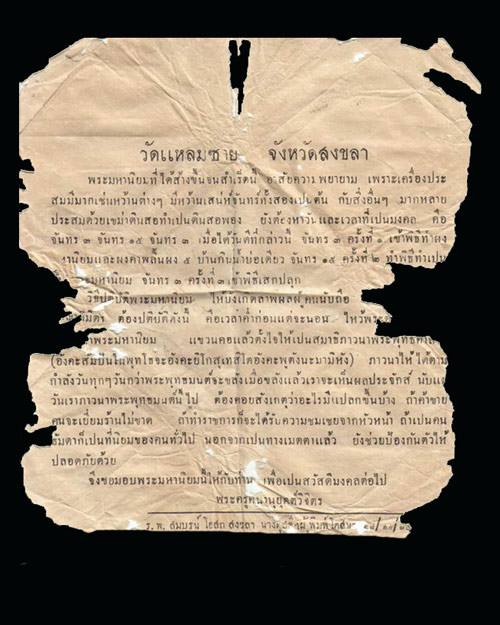 วัดแหลมทราย จังหวัดสงขลา
พระมหานิยมที่ได้สร้างขึ้นจนสำเร็จนี้ อาศัยความพยายาม เพราะเครื่องประ
สมมีมากเช่นหว้านต่างๆ มีหว้านเสน่ห์จันทร์ทั้งสองเป็นต้น กับสิ่งอื่นๆ มากหลาย
ประสมด้วยเขม่าดินสอทำเป็นดินสอพอง ยังต้องหาวันและเวลาที่เป็นมงคล คือ
จันทร ๓ จันทร ๑๕ จันทร ๓ เมื่อได้วันที่กล่าวนี้ จันทร ๓ ครั้งที่ ๑ เข้าพิธีทำผง
านิยมและผงคำพลิ้นผง ๕ บ้านกินน้ำบ่อเดียว จันทร ๑๕ ครั้งที่ ๒ ทำพิธีทำเป็น
ะมหานิยม จันทร ๓ ครั้งที่ ๓ เข้าพิธีเสกปลุก
วิธีปฏิบัติพระมหานิยม ให้บังเกิดลาภผล คนนับถือ
มิตร ต้องปฏิบัติดังนี้ คือเวลาค่ำก่อนแต่จะนอน ให้ว้พระ
าพระมหานิยม แขวนคอแล้วตั้งใจให้เป็นสมาธิภาวนาพระพุทธคา
(อังคะสัมปันโนพุทโธจะอังคะยิโกสุเทสิโตอังคะพุดังนะมามิหัง) ภาวนาให้ได้ตาม
กำลังวันทุกๆวันกว่าพระพุทธมนต์จะขลังเมื่อขลังแล้วเราจะเห็นผลประจักษ์ นับแต่
วันเราภาวนาพระพุทธมนต์นี้ไป ต้องคอยสังเกตว่าอะไรมีแปลกขึ้นบ้าง ถ้าค้าขาย
คนจะเยี่ยมร้านไม่ขาด ถ้าทำราชการก็จะได้รับความชมเชยจากหัวหน้า ถ้าเป็นคน
ธัมดาก็เป็นที่นิยมของคนทั่วไป นอกจากเป็นทางเมตตาแล้ว ยังช่วยป้องกันตัวให้
ปลอดภัยด้วย
จึงขอมอบพระมหานิยมนี้ให้กับท่าน เพื่อเป็นสวัสดิมงคลต่อไป
พระครูคนานุยุตต์วิจิตร
ร. พ. สมบูรณ์ สงขลา